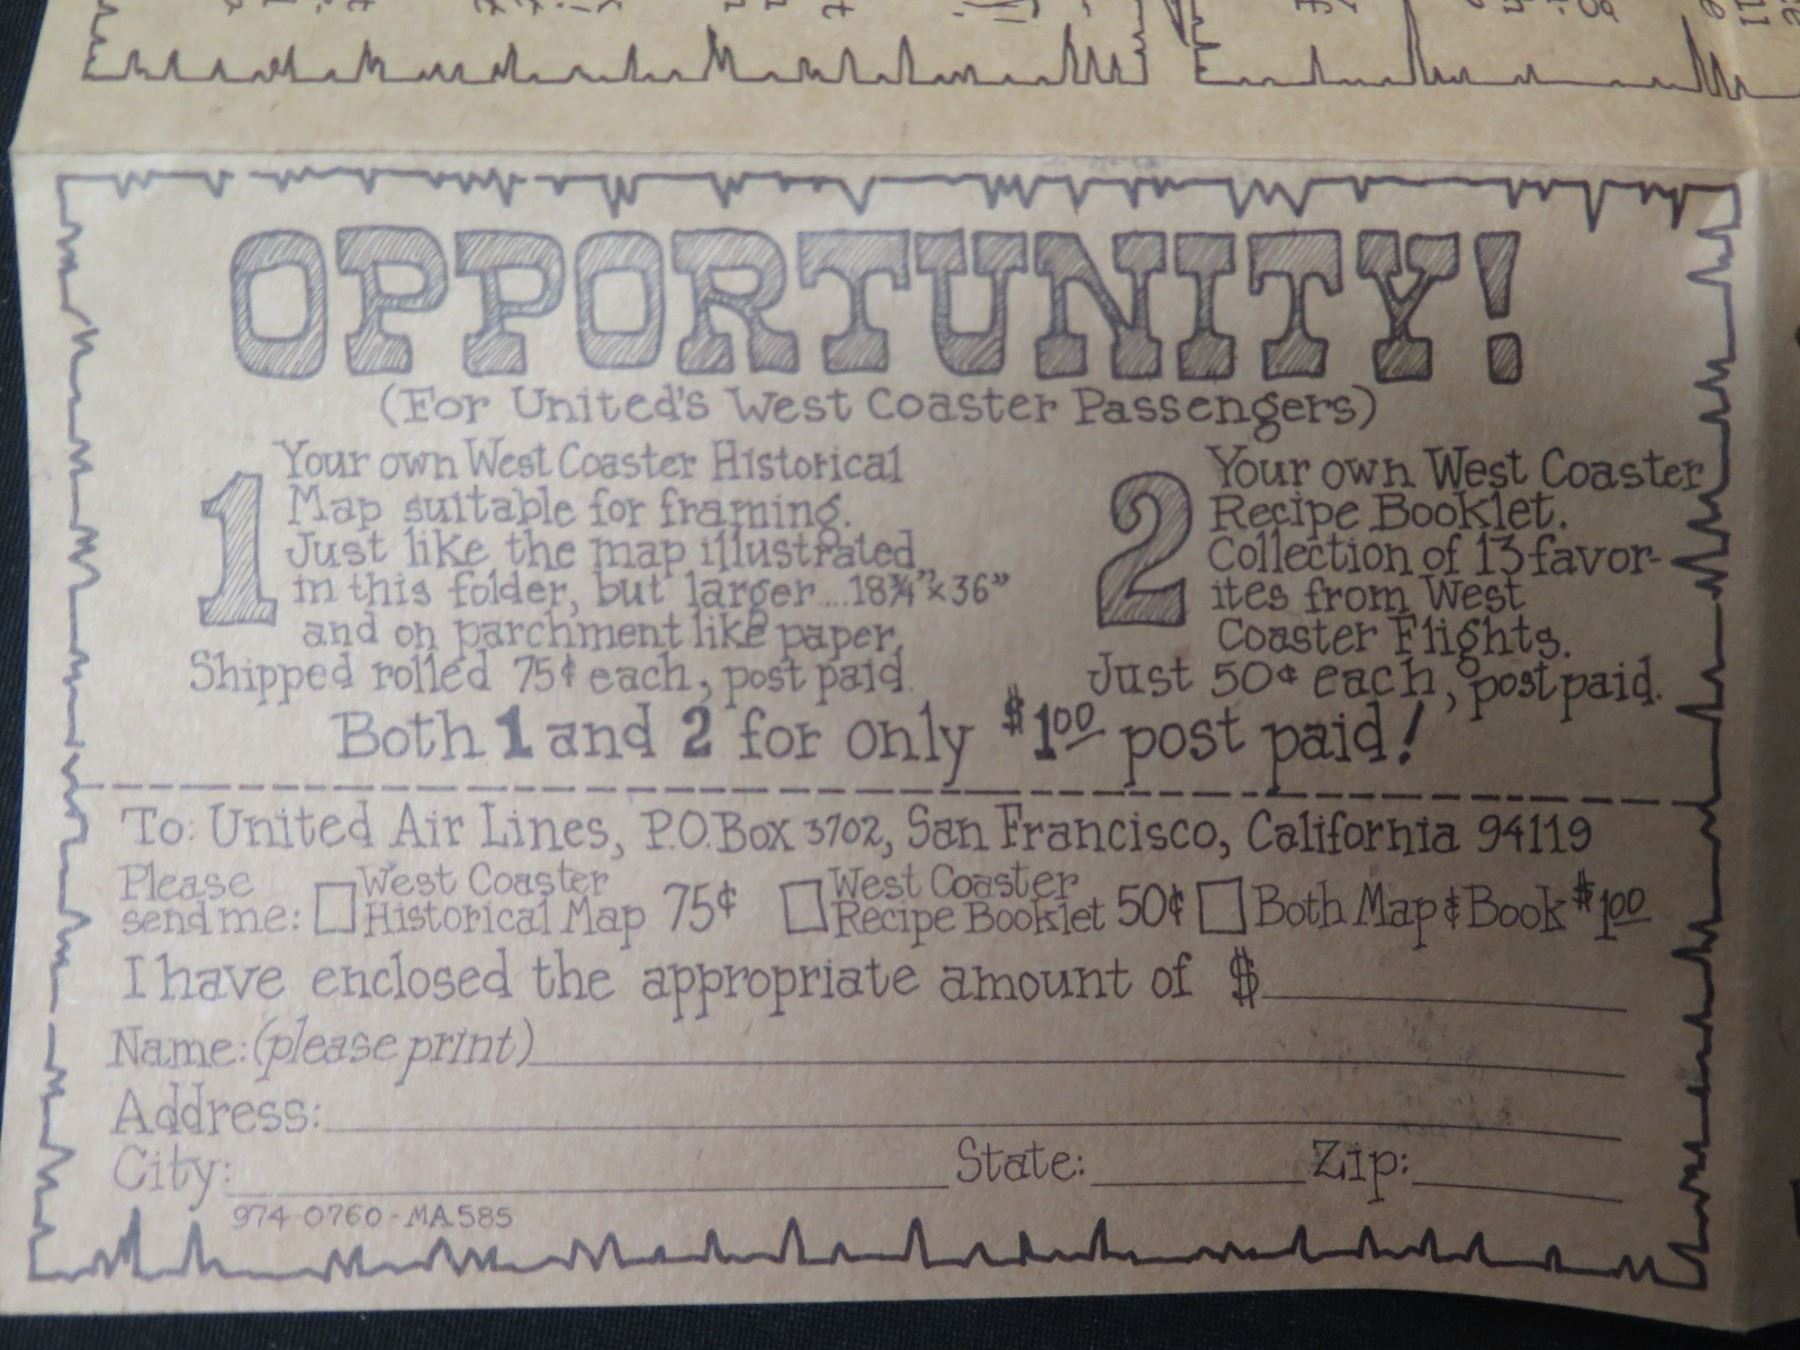 OPPORTUNITY!
(For United's West Coaster Passengers)
1 Your own West Coaster Historical
Map suitable for framing.
Just like the map illustrated
in this folder, but larger....18¾"x36"
and on parchment like paper,
Shipped rolled 75¢ each, post paid.
2 Your own West Coaster
Recipe Booklet.
Collection of 13 favor-
ites from West
Coaster Flights.
Just 50¢ each, post paid.
Both 1 and 2 for only $1.00 post paid!
To: United Air Lines, P.O. Box 3702, San Francisco, California 94119
Please send me: □ West Coaster Historical Map 75¢ □ West Coaster Recipe Booklet 50¢ □ Both Map & Book $1.00
I have enclosed the appropriate amount of $
Name: (please print)
Address:
City: State: Zip:
974-0760-MA585